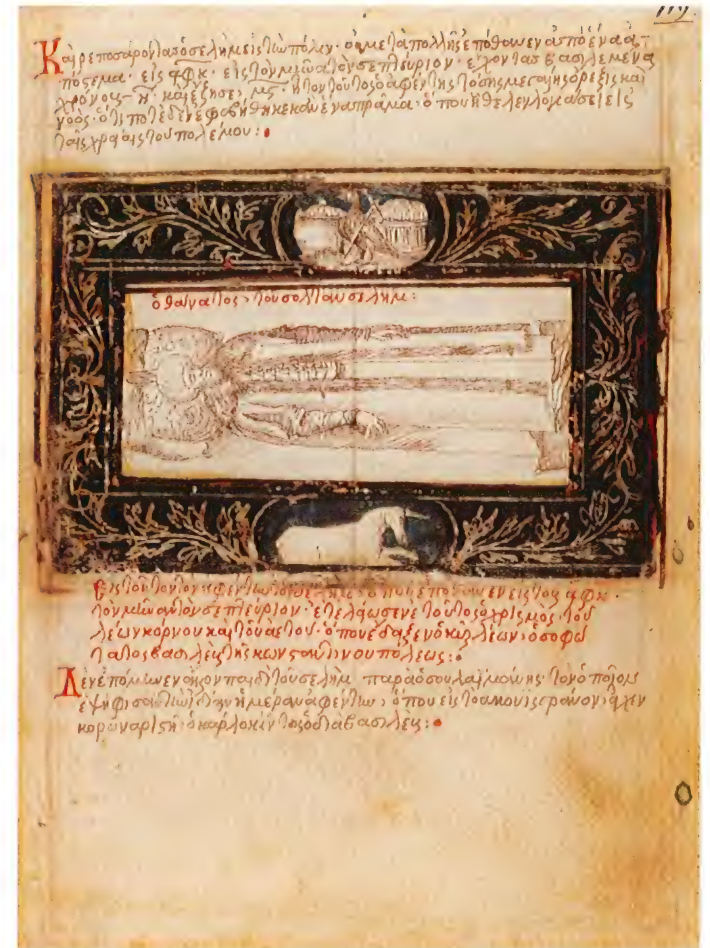 119
Καὶ ρεποσάροντας ὁ σελὴμ εἰς τὴν πόλιν · μετὰ πολλῆς ἐπόθανεν ἀπὸ ἕνα ἀ-
πόστεμα · εἰς ͵αφκ · εἰς τὸν μῆνα τὸν σεπτέυριον · ἔχοντας βασιλεμένα
χρόνους η · καὶ ἔζησε μς · ἦτον τοῦτος ὁ ἀφέντης τόσης μεγάλης ὄρεξις καὶ
ὅτι ποτὲ δὲν ἐφοβήθηκε κανένα πράμα · ὁποῦ ἤθελεν εἰς
ταῖς χρείαις τοῦ πολέμου :
ὁ θάνατος τοῦ σολτὰν σελὴμ :
Εἰς τοῦτον τὸν ἀφέντην τὸν σελὴμ · ὁποῦ ἐπόθανεν εἰς τοὺς ͵αφκ ·
τὸν μῆναν τὸν σεπτέυριον · ἐτελείωσενε τοῦτος ὁ χρισμὸς · τοῦ
λέων κόρνου καὶ τοῦ ἀετοῦ · ὁποῦ ἔδαξεν ὁ κὺρ λέων · ὁ σοφώ
τατος βασιλεὺς τῆς κωνσταντίνου πόλεως :
Δὲν ἐπόμεινεν ἄλλον παιδὶ τοῦ σελὴμ παρὰ ὁ σουλαϊμάνης · τὸν ὁποῖον
ἐψήφισαν τὴν ἰδίαν ἡμέραν ἀφέντην · ὁποῦ εἰς τὸ
κορωναριστῆ ὁ κάρλο κίντος διὰ βασιλεὺς :